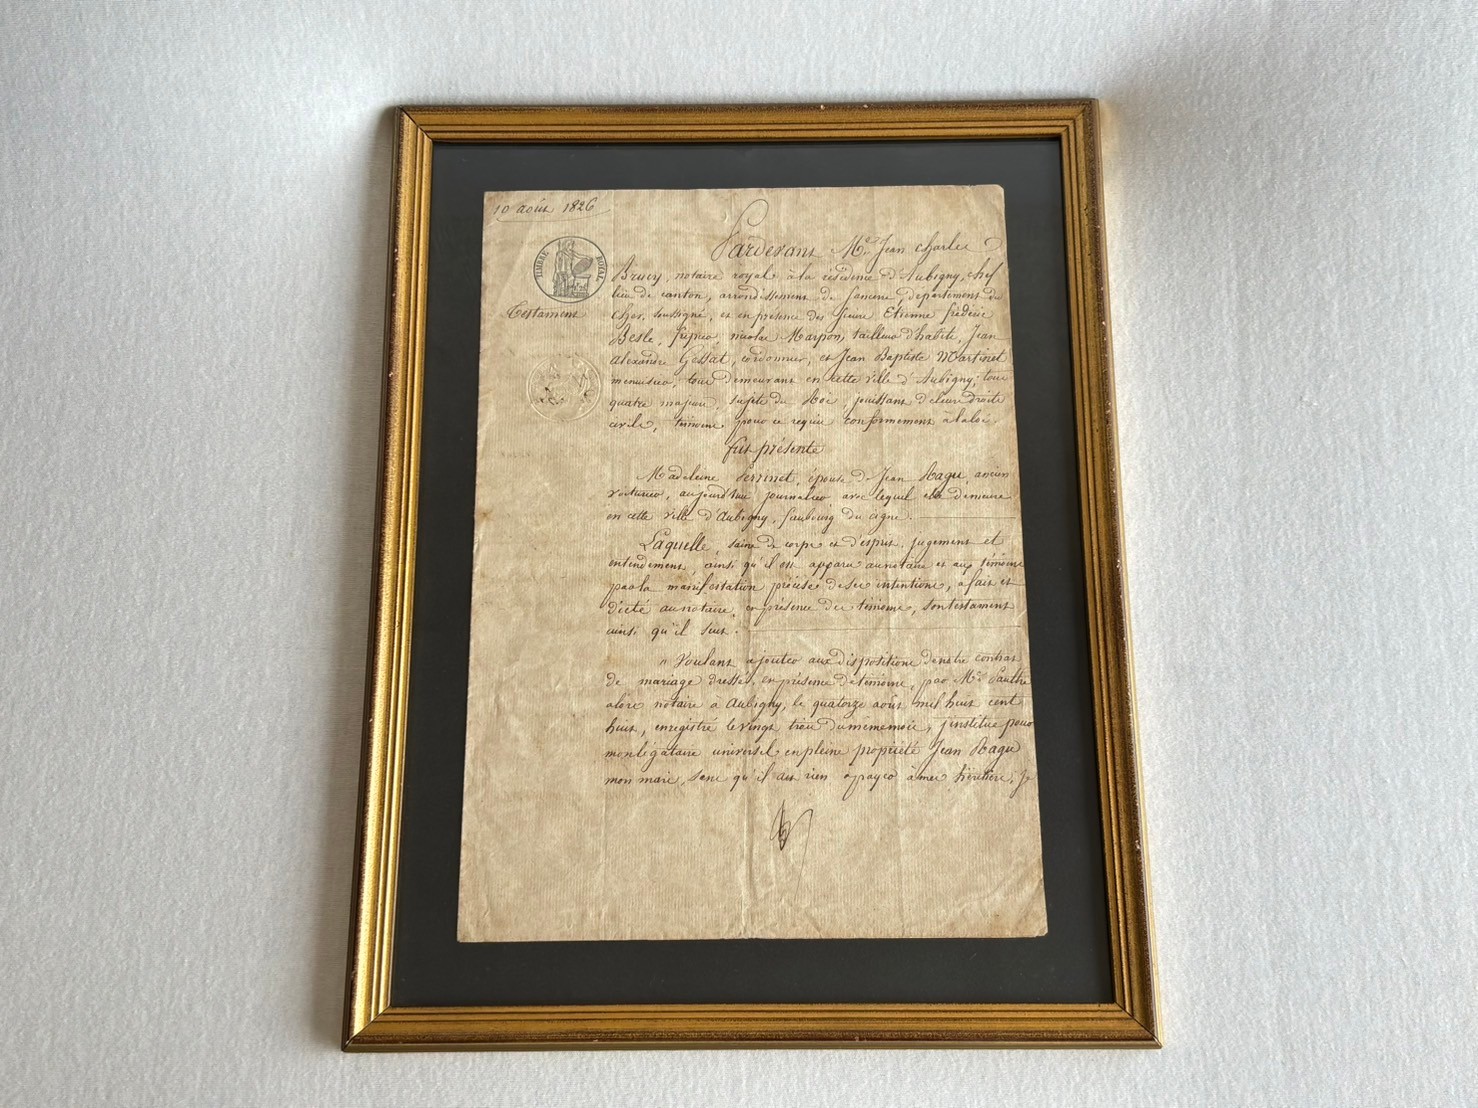 10 août 1826
TIMBRE ROYAL
Testament
Pardevant Me. Jean Charles
Brucy, notaire royal à la résidence d'Aubigny, chef
lieu de canton, arrondissement de Sancerre département du
Cher, soussigné, et en présence des sieurs Etienne frédéric
Besle, fripier, nicolas Marpon, tailleur d'habits, Jean
alexandre Gessat, cordonnier, et Jean Baptiste Martinet
menuisier, tous demeurant en cette ville d'Aubigny; tous
quatre majeurs, sujets du Roi, jouissant de leurs droits
civils, témoins pour ce requis conformément à la loi.
fut présente
Madeleine Perrinet, épouse de Jean Ragu, ancien
voiturier, aujourd'hui journalier avec lequel elle demeure
en cette ville d'Aubigny, faubourg du cigne.
Laquelle, saine de corps et d'esprit, jugement et
entendement, ainsi qu'il est apparu au notaire et aux témoins
par la manifestation précise de ses intentions, a fait et
dicté au notaire, en présence des témoins, son testament
ainsi qu'il suit.
" Voulant ajouter aux dispositions de notre contrat
de mariage dressé, en présence de témoins, par Me. Paultre
alors notaire à Aubigny, le quatorze août mil huit cent
huit, enregistré le vingt trois du même mois, j'institue pour
mon légataire universel en pleine propriété Jean Ragu
mon mari, sans qu'il ait rien à payer à mes héritiers, Je